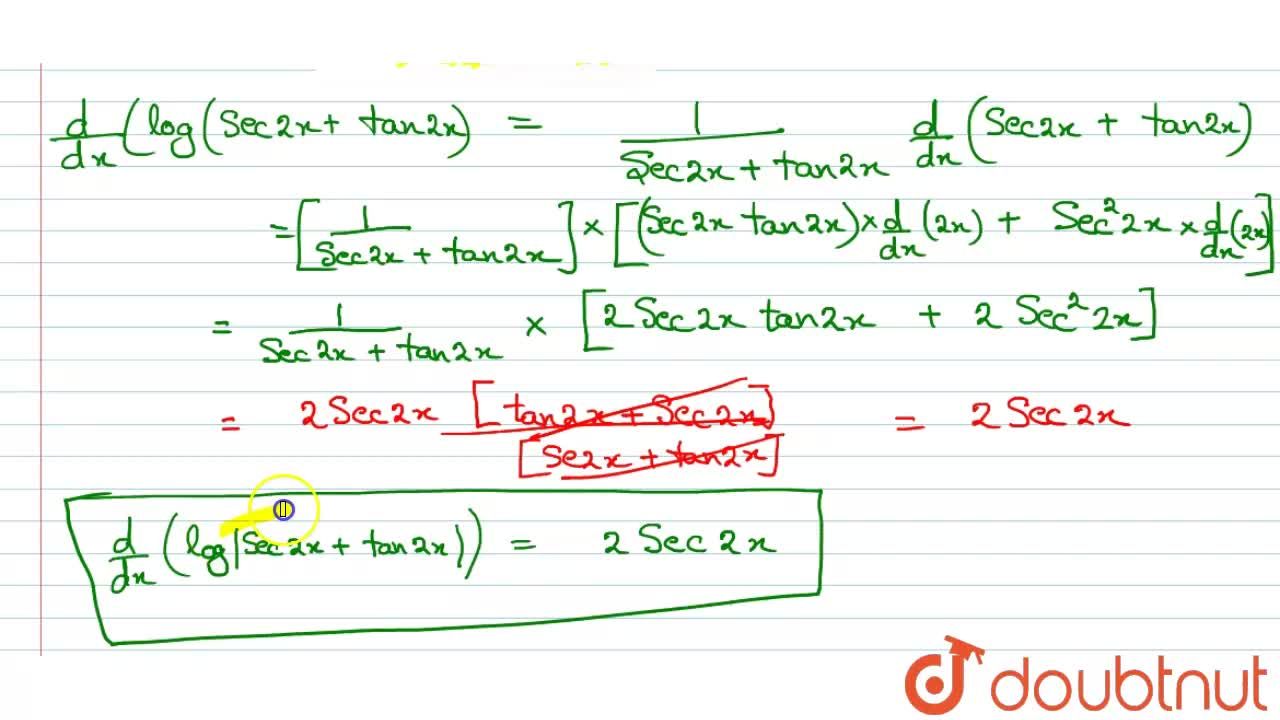 d/dx (log(Sec2x + tan2x) = 1/(Sec2x + tan2x) d/dx (Sec2x + tan2x)
= [1/(Sec2x + tan2x)] × [(Sec2x tan2x) × d/dx (2x) + Sec² 2x × d/dx (2x)]
= 1/(Sec2x + tan2x) × [2 Sec2x tan2x + 2 Sec² 2x]
= 2 Sec2x [tan2x + Sec2x] / [Se2x + tan2x] = 2 Sec2x
d/dx (log|Sec2x + tan2x|) = 2 Sec2x
doubtnut